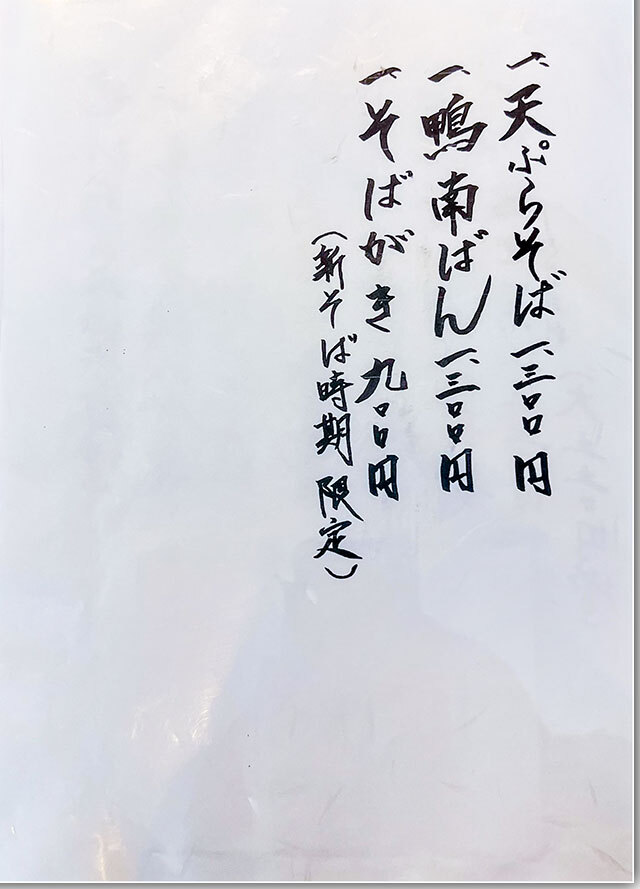 一、天ぷらそば 一、三〇〇円
一、鴨南ばん 一、三〇〇円
一、そばがき 九〇〇円
（新そば時期限定）